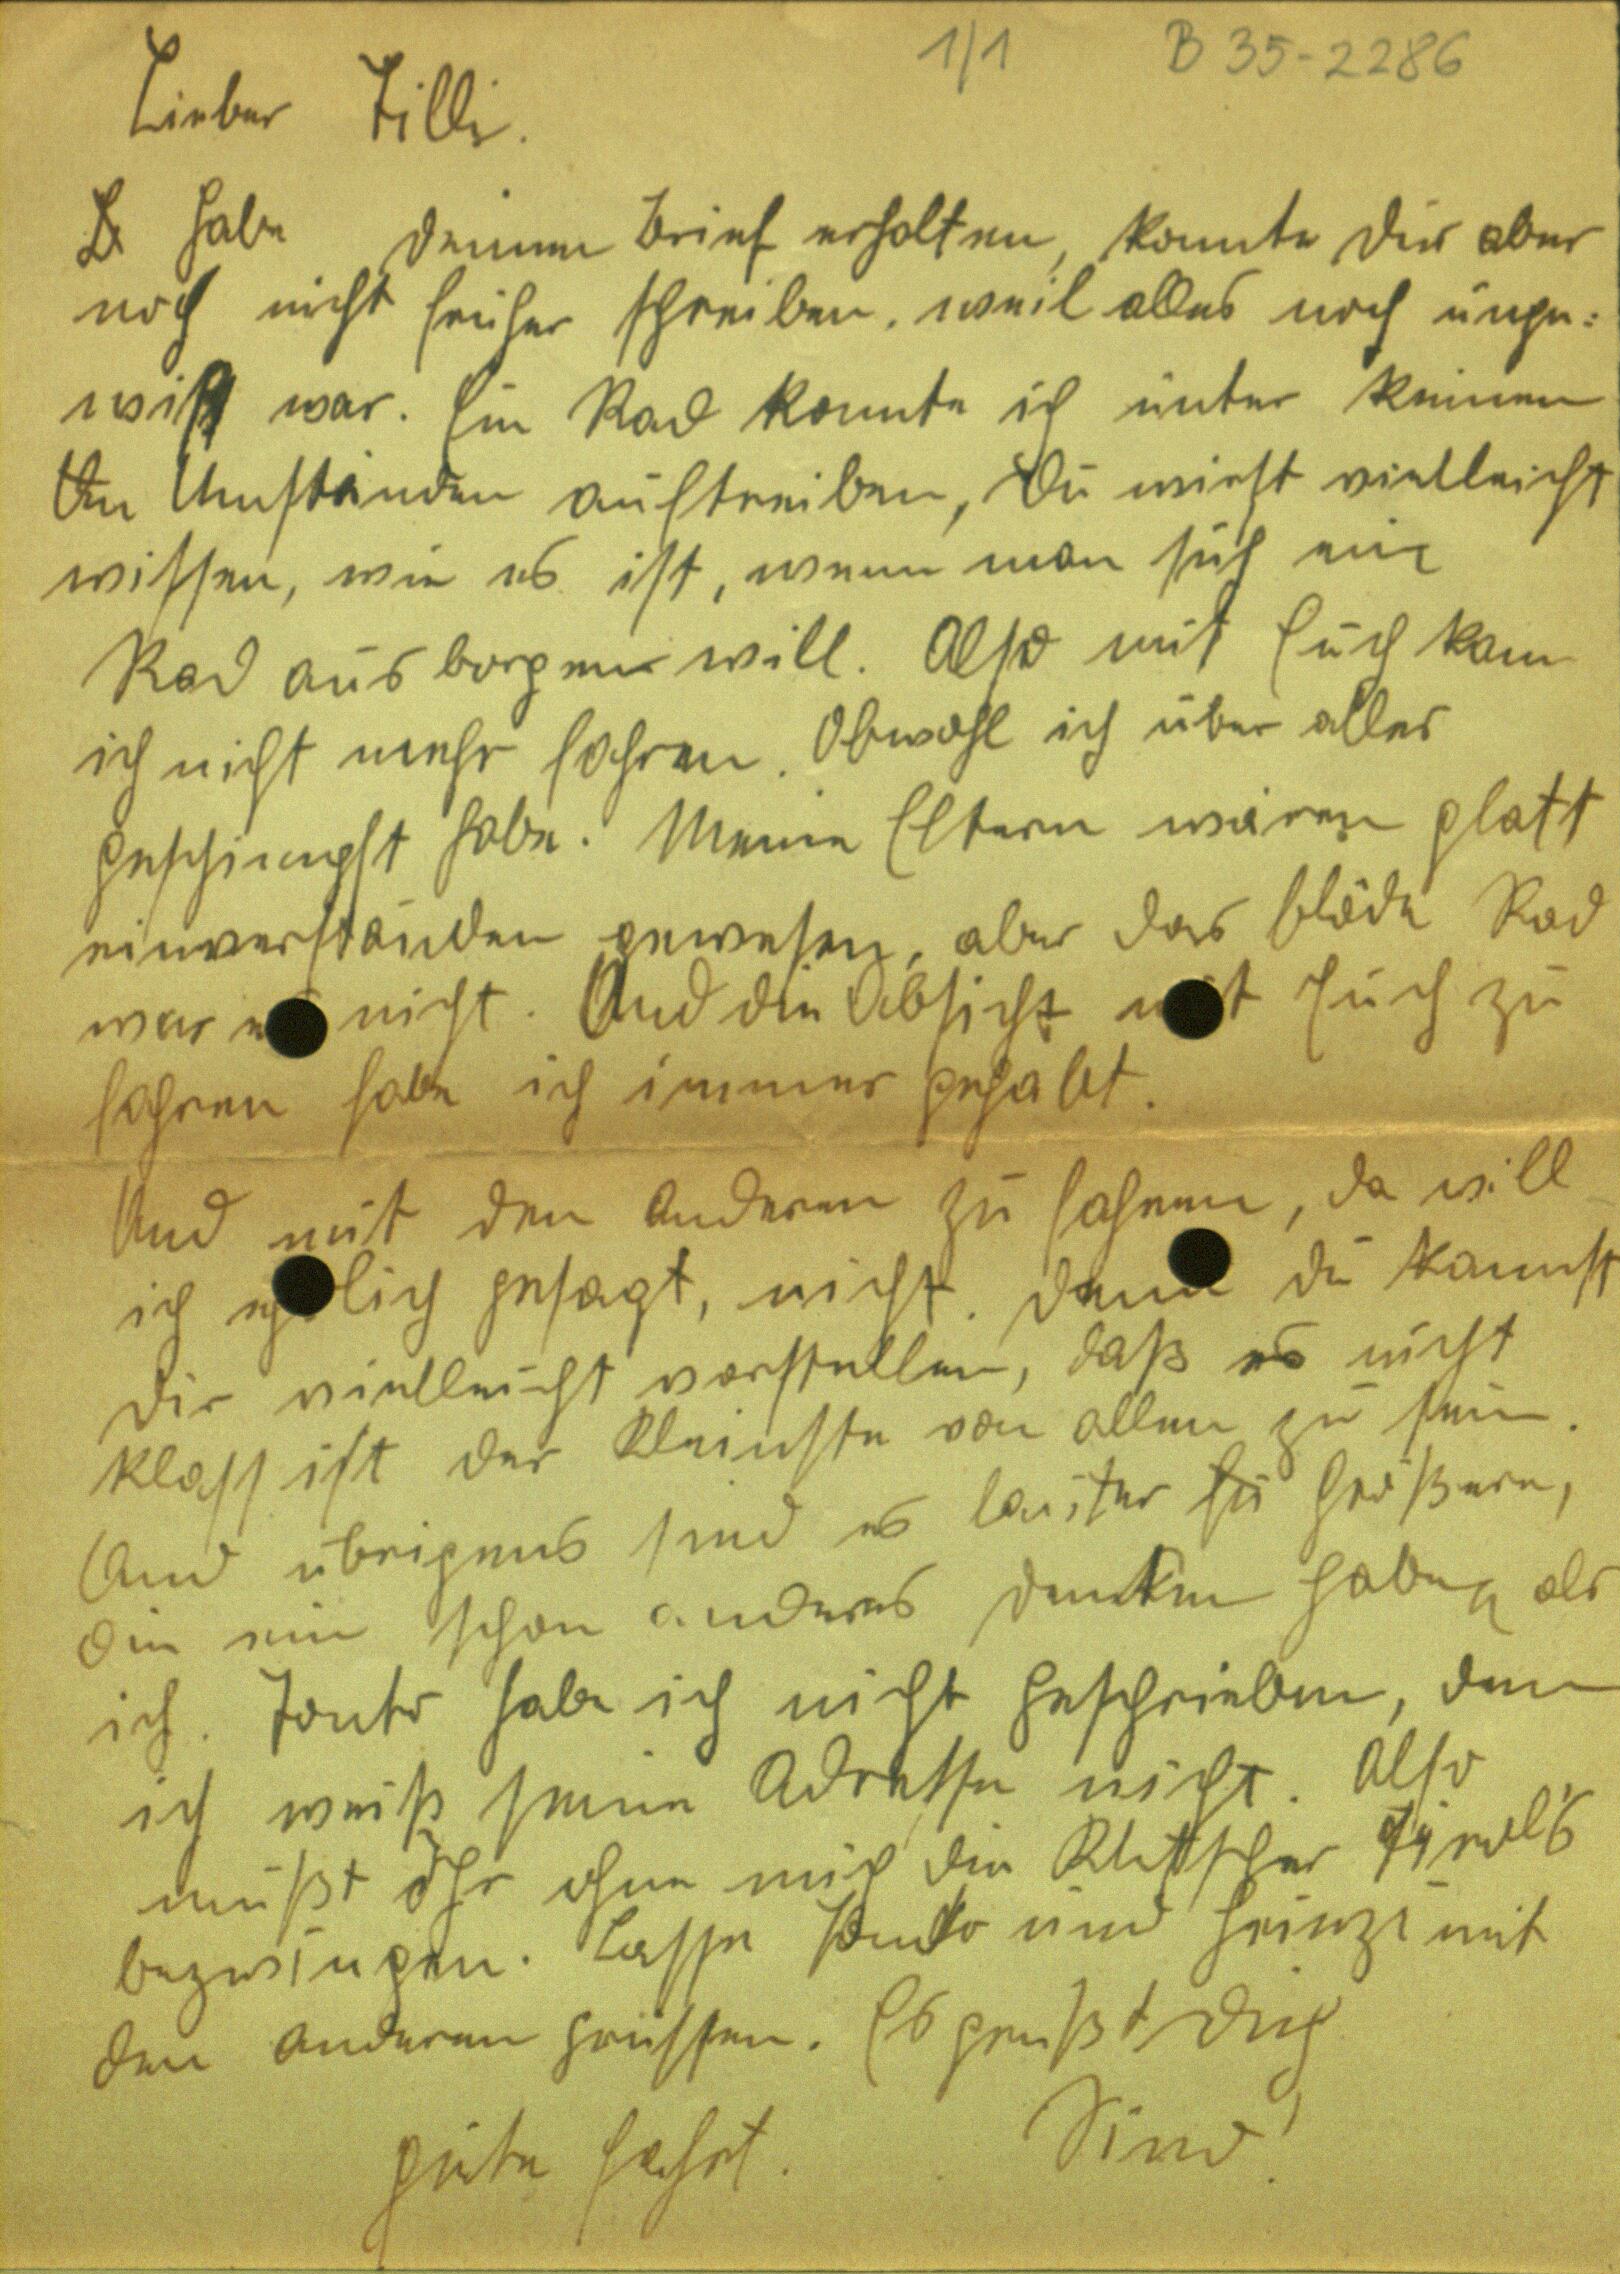 1/1 B 35-2286
Lieber Tilli.
habe deinen Brief erhalten, konnte Dir aber
noch nicht früher schreiben, weil alles noch unge=
wiß war. Ein Rad konnte ich unter keinen
Umständen auftreiben, Du wirst vielleicht
wissen, wie es ist, wenn man sich ein
Rad ausborgen will. Also mit Euch kann
ich nicht mehr fahren. Obwohl ich über alles
geschimpft habe. Meine Eltern wären glatt
einverstanden gewesen, aber das blöde Rad
war es nicht. Und die Absicht mit Euch zu
fahren habe ich immer gehabt.
Und mit den Anderen zu fahren, da will
ich ehrlich gesagt, nicht. Denn du kannst
Dir vielleicht vorstellen, daß es nicht
klass ist der Kleinste von allen zu sein.
Und übrigens sind es lauter Größere,
die ein schon anderes Denken haben als
ich. Tonto habe ich nicht geschrieben, denn
ich weiß seine Adresse nicht. Also
müßt Ihr ohne mich die
bezwingen. Lasse Tonto und Heinzi mit
den anderen grüssen. Es grüßt Dich
gute Fahrt.